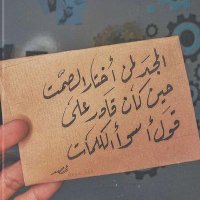 المجد لمن أختار الصمت
حين كان قادر على
قول أسوأ الكلمات